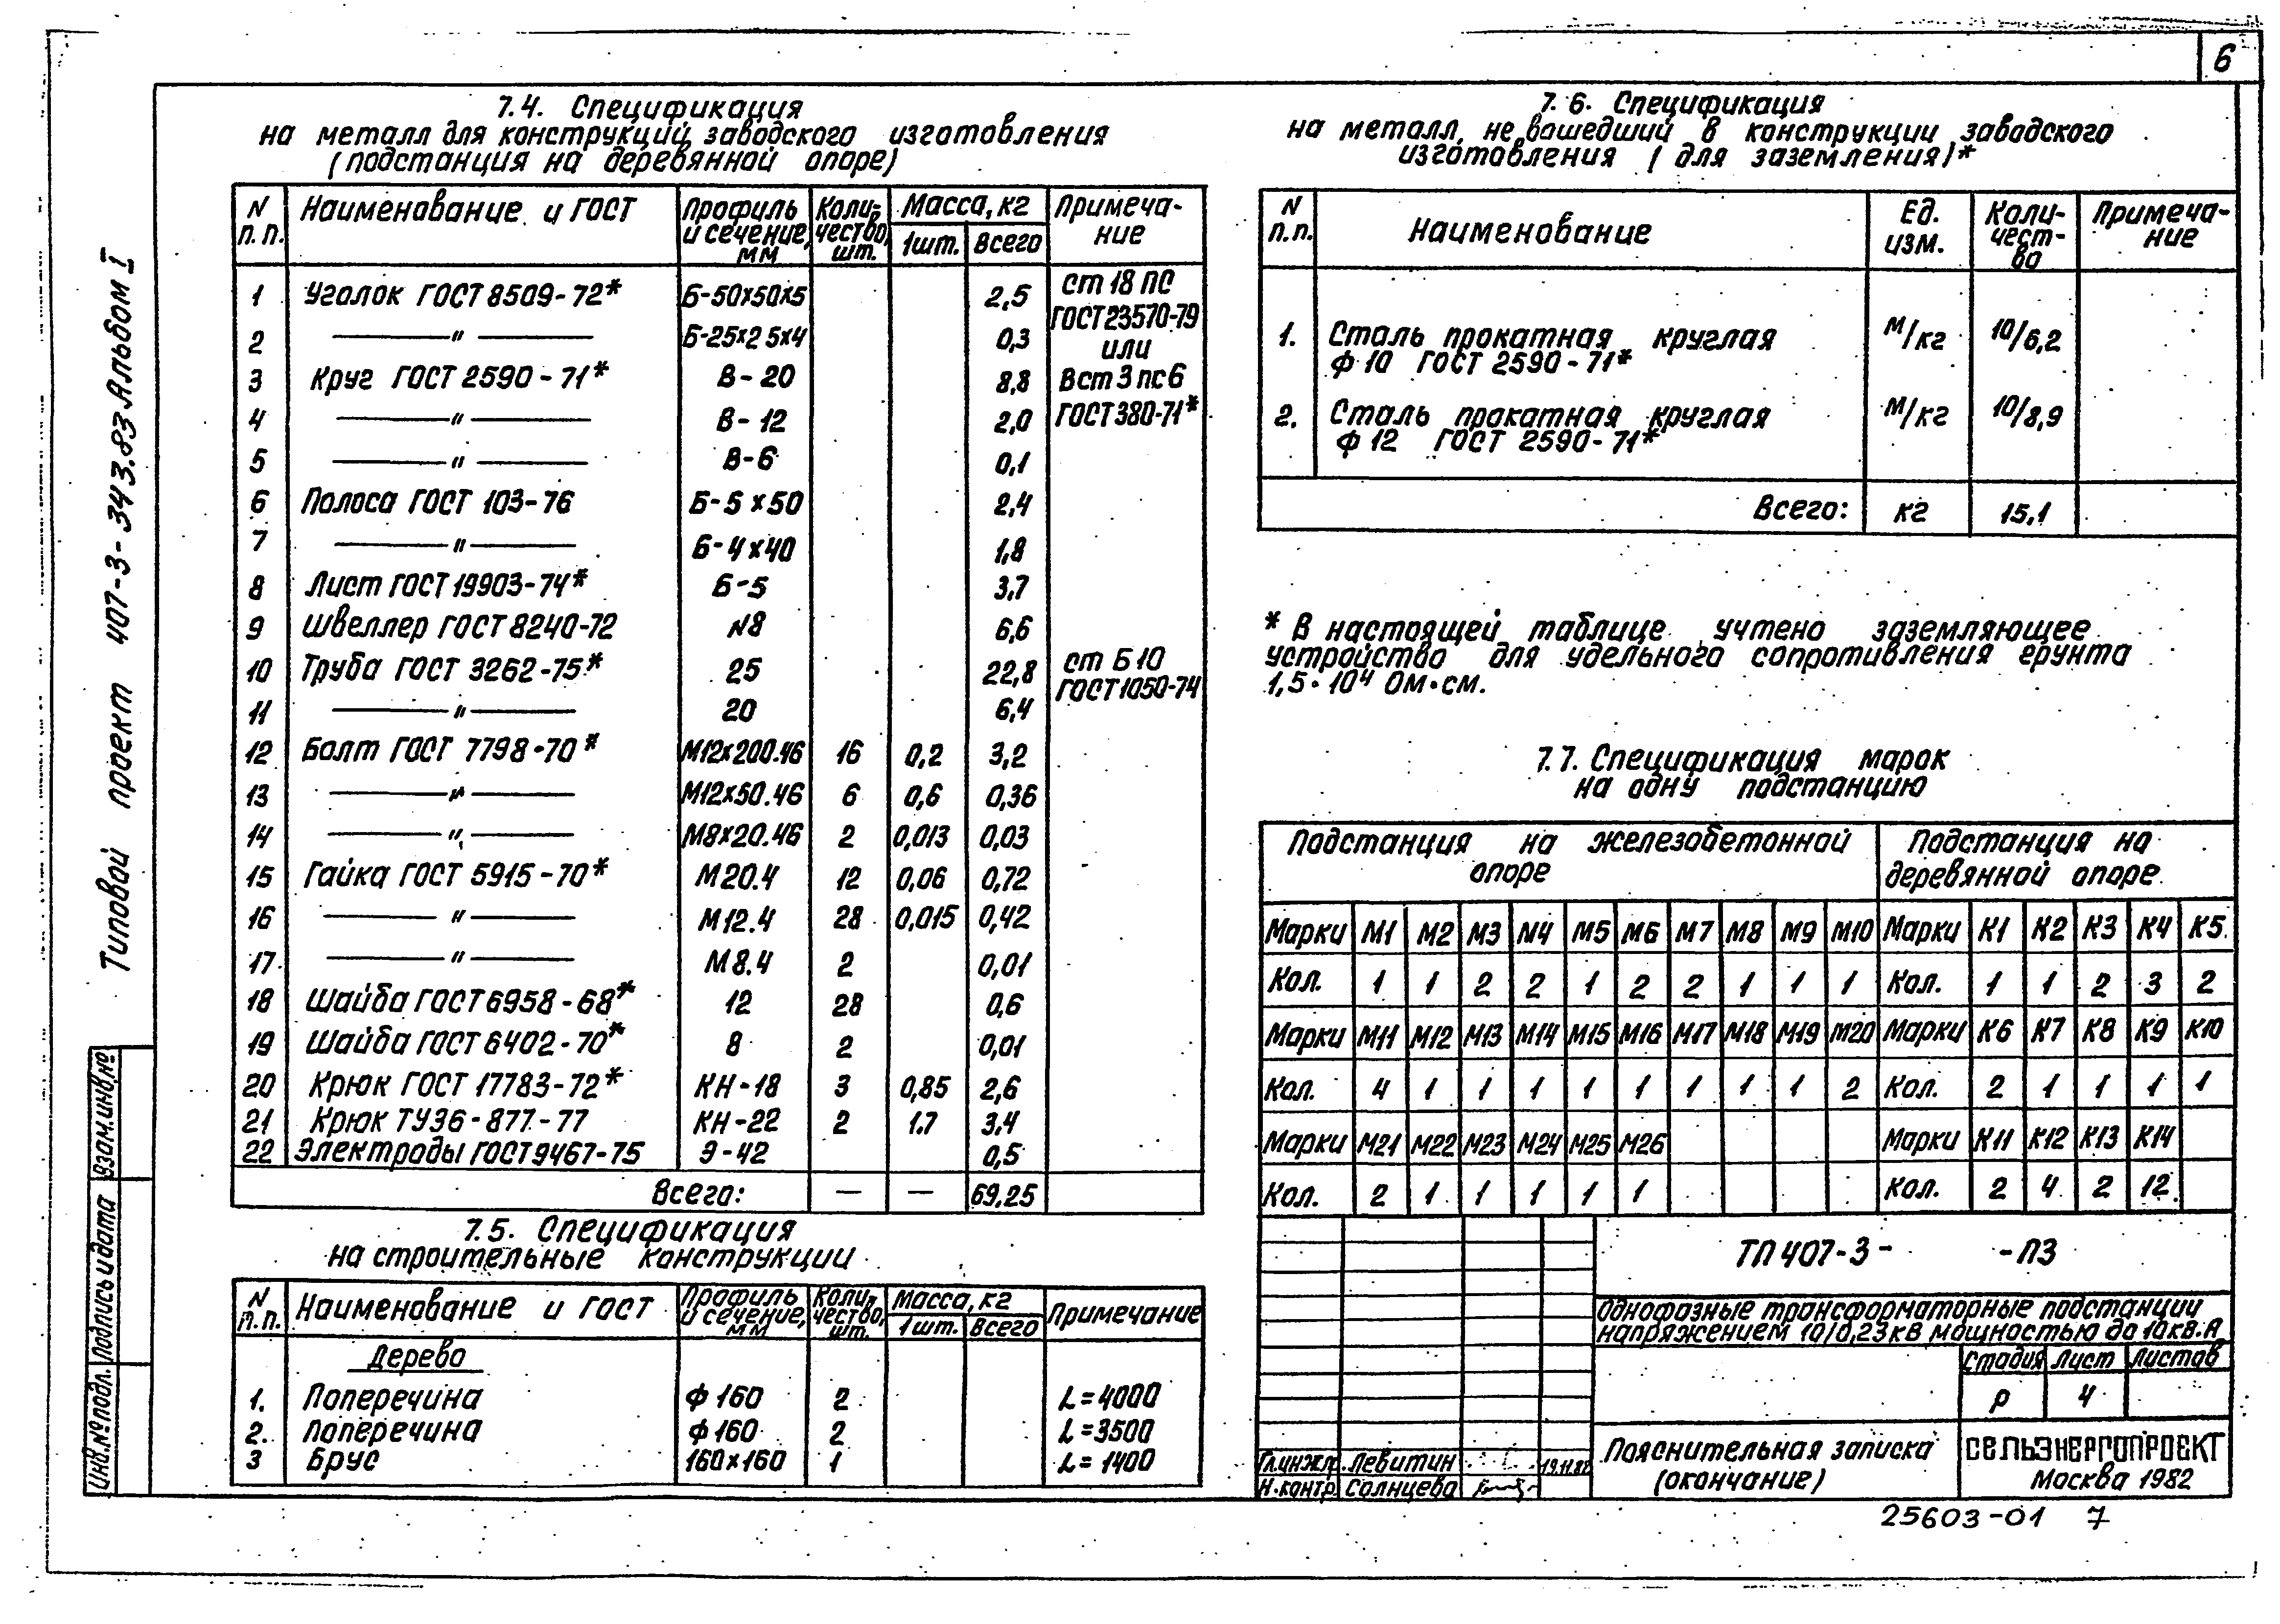 6
7.4. Спецификация
на металл для конструкций заводского изготовления
(подстанция на деревянной опоре)
N п.п. Наименование и ГОСТ Профиль и сечение, мм Количество, шт. Масса, кг 1шт. Всего Примечание
1 Уголок ГОСТ 8509-72* Б-50х50х5 2,5 ст 18 ПС
ГОСТ 23570-79
2 —〃— Б-25х25х4 0,3 или
3 Круг ГОСТ 2590-71* В-20 8,8 Вст 3 пс 6
4 —〃— В-12 2,0 ГОСТ 380-71*
5 —〃— В-6 0,1
6 Полоса ГОСТ 103-76 Б-5х50 2,4
7 —〃— Б-4х40 1,8
8 Лист ГОСТ 19903-74* Б-5 3,7
9 Швеллер ГОСТ 8240-72 N8 6,6
10 Труба ГОСТ 3262-75* 25 22,8 ст Б 10
ГОСТ 1050-74
11 —〃— 20 6,4
12 Болт ГОСТ 7798-70* М12х200.46 16 0,2 3,2
13 —〃— М12х50.46 6 0,6 0,36
14 —〃— М8х20.46 2 0,013 0,03
15 Гайка ГОСТ 5915-70* М20.4 12 0,06 0,72
16 —〃— М12.4 28 0,015 0,42
17 —〃— М8.4 2 0,01
18 Шайба ГОСТ 6958-68* 12 28 0,6
19 Шайба ГОСТ 6402-70* 8 2 0,01
20 Крюк ГОСТ 17783-72* КН-18 3 0,85 2,6
21 Крюк ТУ36-877-77 КН-22 2 1.7 3,4
22 Электроды ГОСТ 9467-75 Э-42 0,5
Всего: — — 69,25
7.5. Спецификация
на строительные конструкции
N п.п. Наименование и ГОСТ Профиль и сечение, мм Количество, шт. Масса, кг 1шт. Всего Примечание
Дерево
1. Поперечина ф 160 2 L=4000
2. Поперечина ф 160 2 L=3500
3 Брус 160х160 1 L=1400
7.6. Спецификация
на металл, не вошедший в конструкции заводского
изготовления (для заземления)*
N п.п. Наименование Ед. изм. Количество Примечание
1. Сталь прокатная круглая м/кг 10/6,2
ф 10 ГОСТ 2590-71*
2. Сталь прокатная круглая м/кг 10/8,9
ф 12 ГОСТ 2590-71*
Всего: кг 15,1
* В настоящей таблице учтено заземляющее
устройство для удельного сопротивления грунта
1,5·10⁴ Ом·см.
7.7. Спецификация марок
на одну подстанцию
Подстанция на железобетонной опоре Подстанция на деревянной опоре
Марки М1 М2 М3 М4 М5 М6 М7 М8 М9 М10 Марки К1 К2 К3 К4 К5
Кол. 1 1 2 2 1 2 2 1 1 1 Кол. 1 1 2 3 2
Марки М11 М12 М13 М14 М15 М16 М17 М18 М19 М20 Марки К6 К7 К8 К9 К10
Кол. 4 1 1 1 1 1 1 1 1 2 Кол. 2 1 1 1 1
Марки М21 М22 М23 М24 М25 М26 Марки К11 К12 К13 К14
Кол. 2 1 1 1 1 1 Кол. 2 4 2 12
ТП 407-3- -ПЗ
Однофазные трансформаторные подстанции
напряжением 10/0,23кв мощностью до 10кВ.А
Стадия Лист Листов
Р 4
Гл.инж.пр. Левитин
Н.контр. Солнцева
Пояснительная записка
(окончание)
СЕЛЬЭНЕРГОПРОЕКТ
Москва 1982
25603-01 7
Типовой проект 407-3-343.83 Альбом I
Инв.№подл. Подпись и дата Взам.инв.№